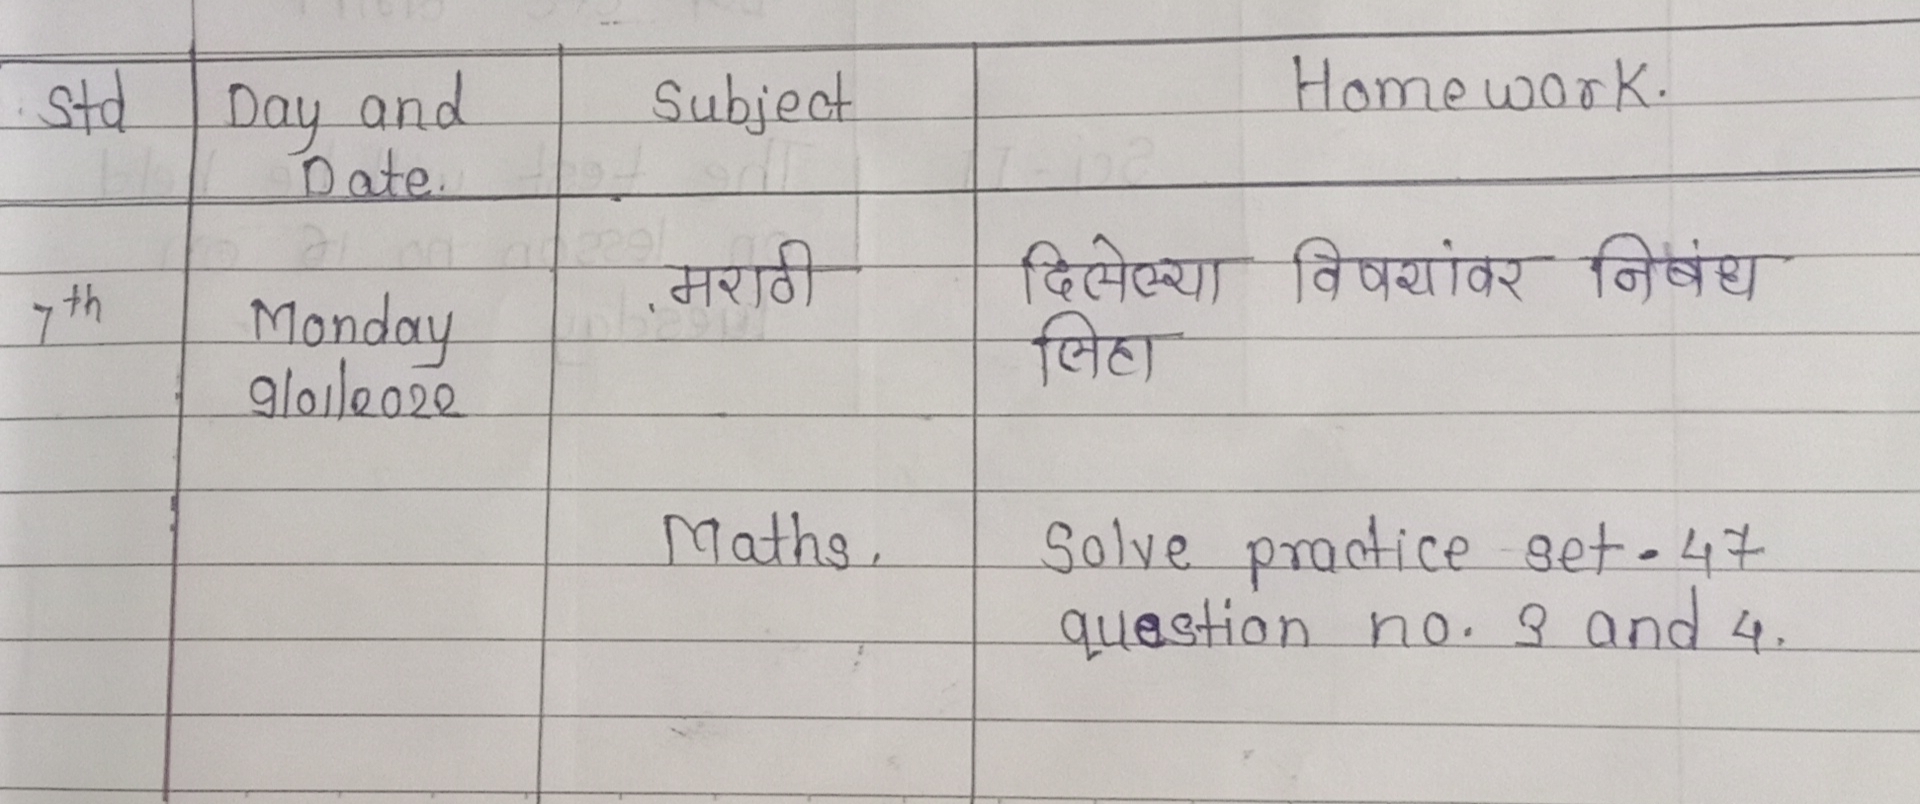 Std Day and Subject Homework.
Date.
7th Monday मराठी दिलेल्या विषयांवर निबंध
9/01/2022 लिहा
Maths. Solve practice set - 47
question no. 3 and 4.